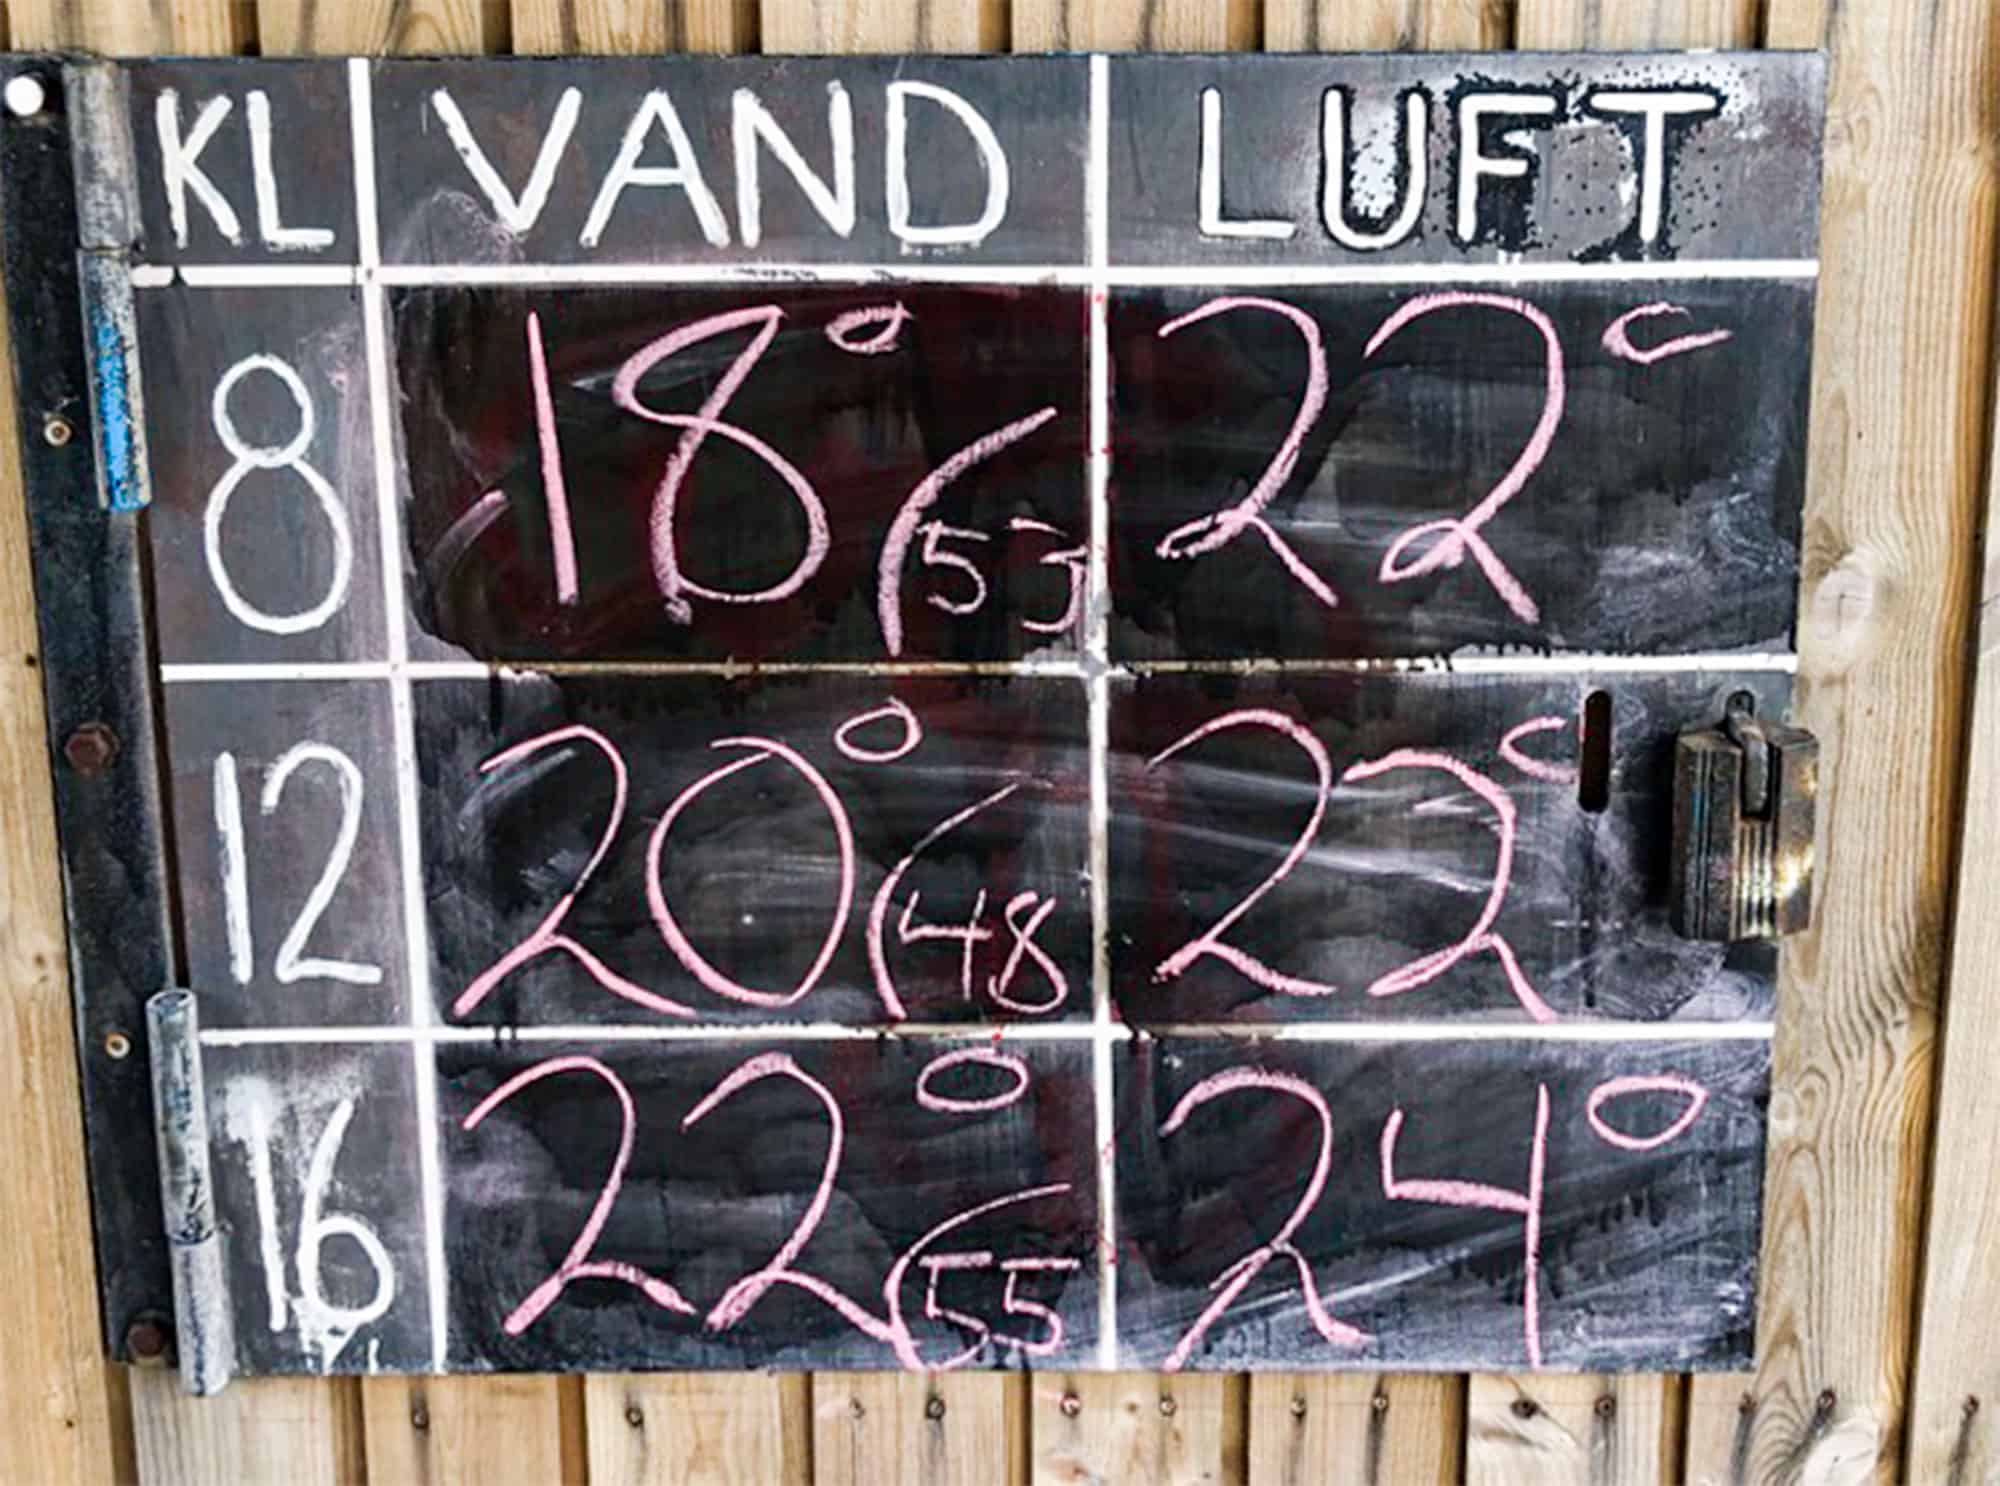 KL VAND LUFT
8 18° (53 22°
12 20° (48 22°
16 22° (55 24°